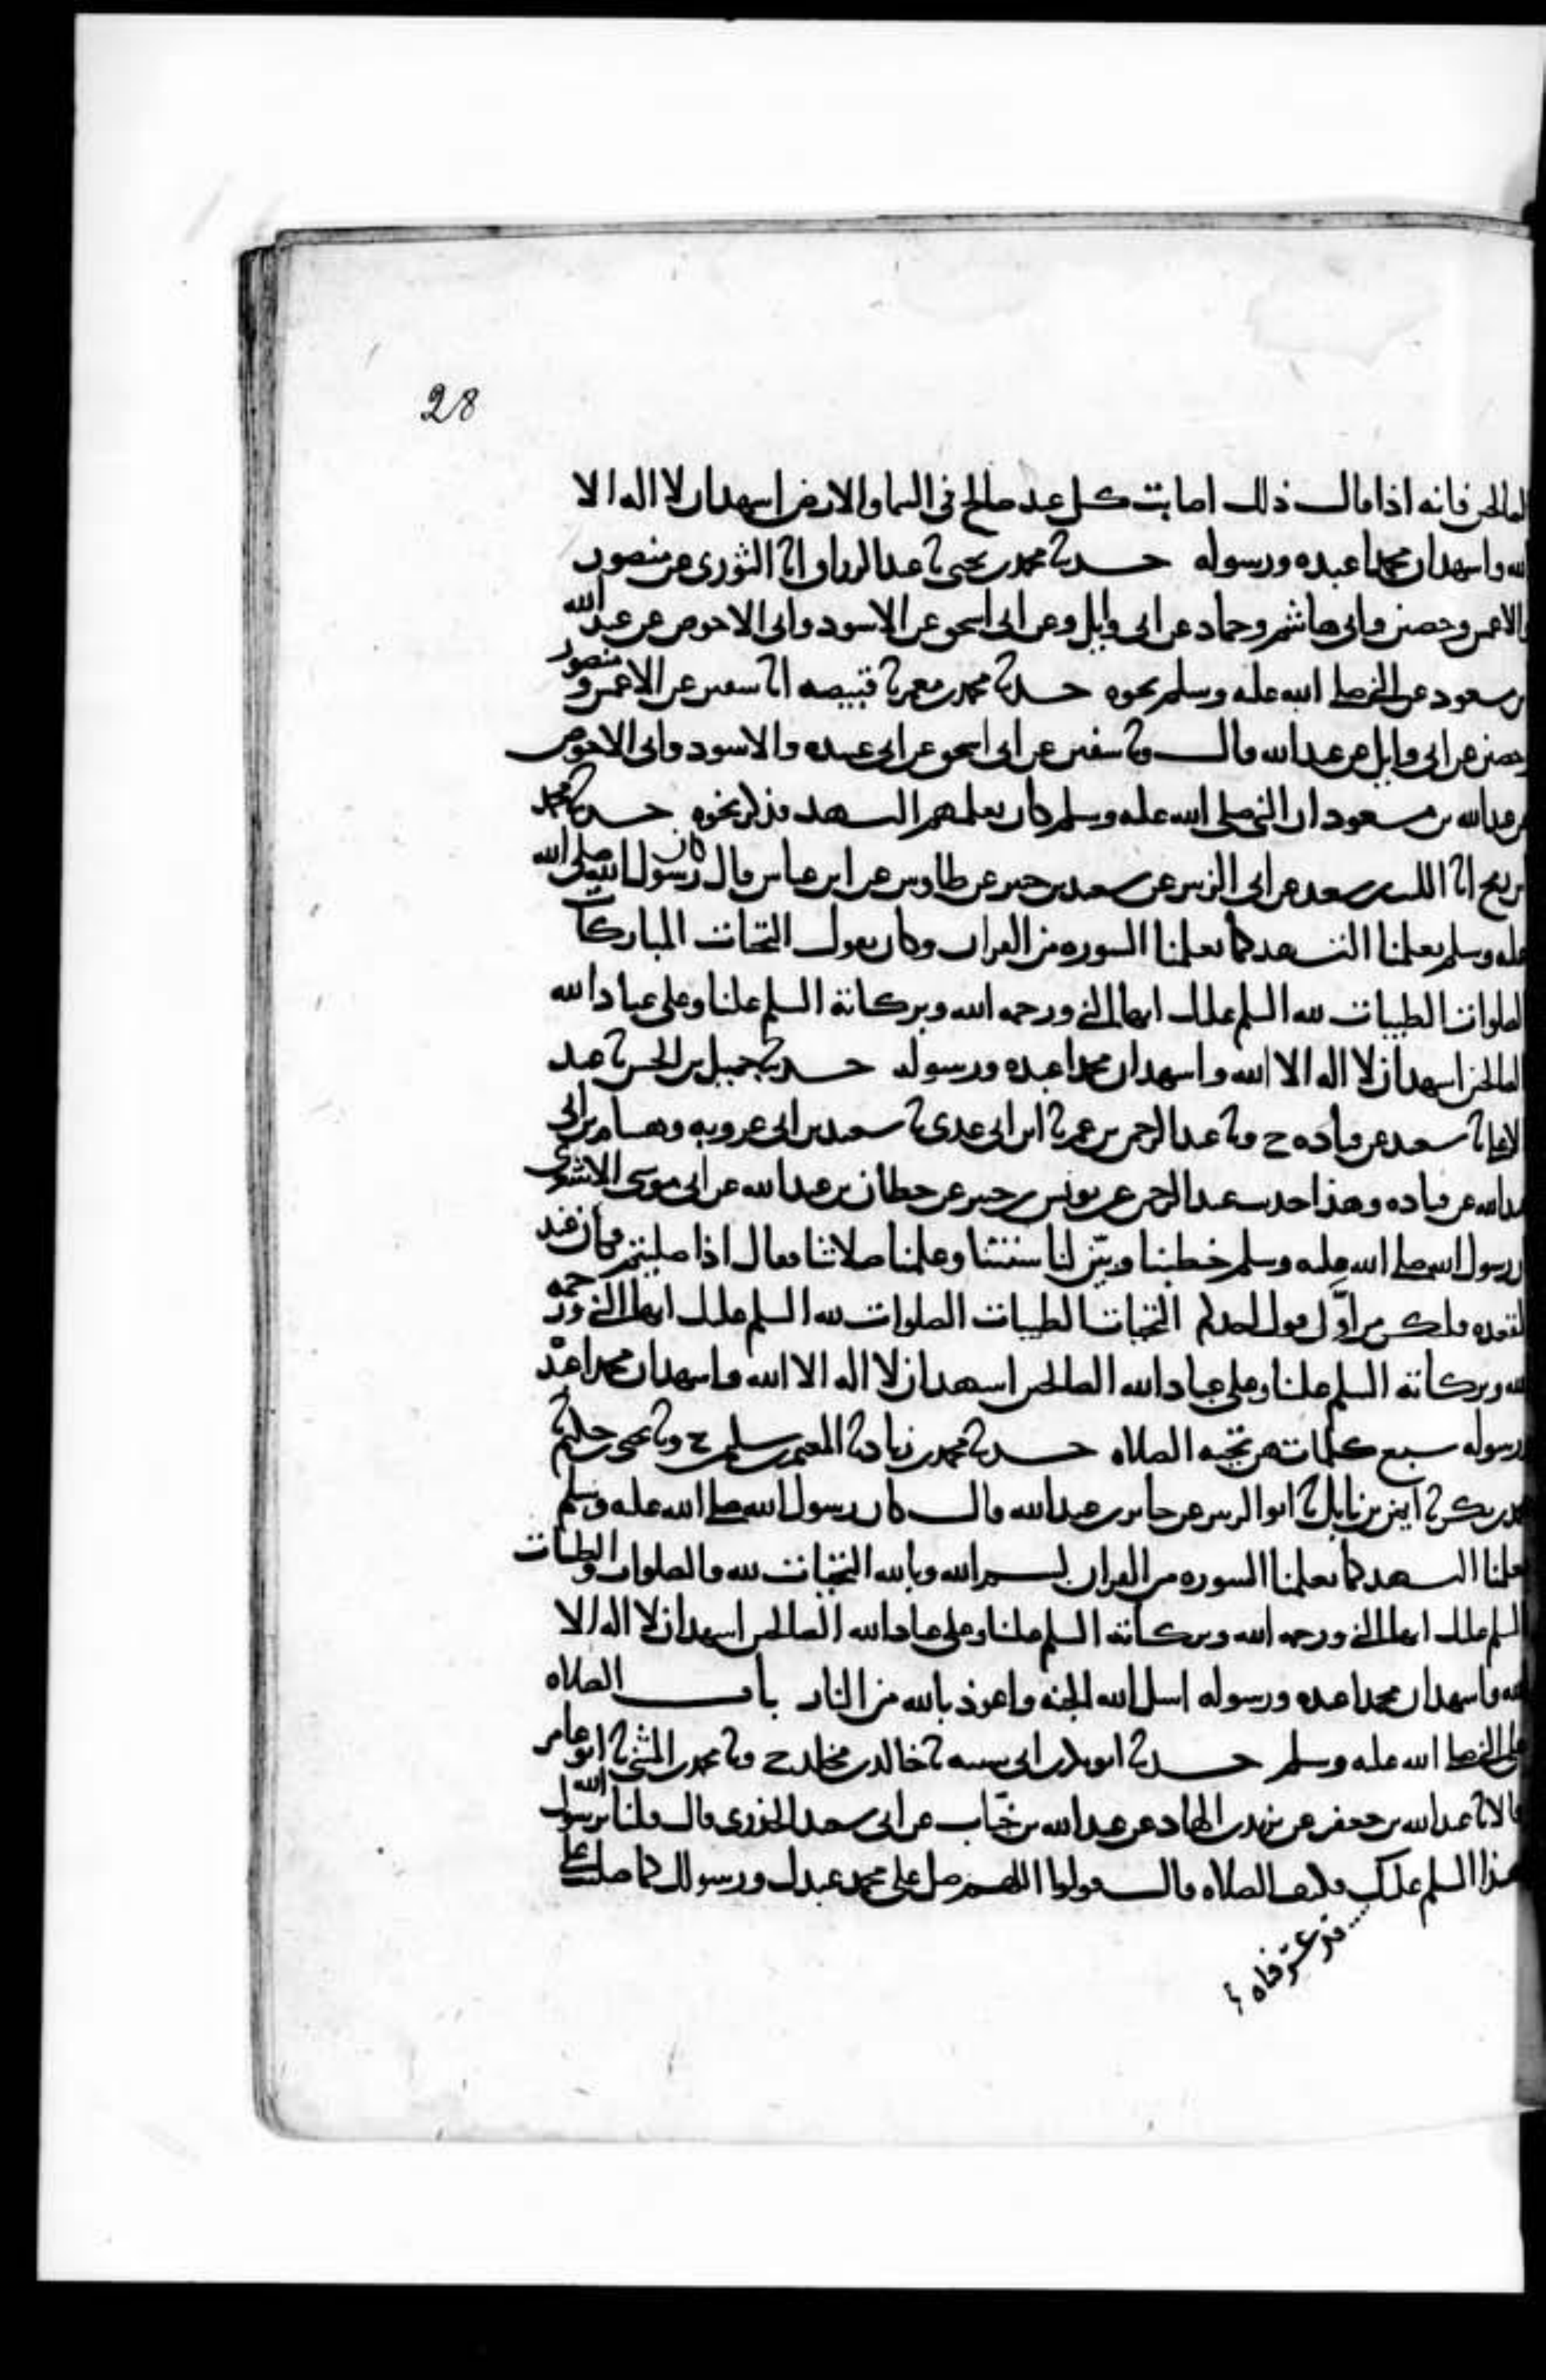 28
الصالحين فانه اذا قال ذلك اصابت كل عبد صالح في السما والارض اشهد ان لا اله الا
الله واشهد ان محمدا عبده ورسوله حدثنا محمد بن يحيى ثنا عبد الرزاق انا الثوري عن منصور
والاعمش وحصين وابي هاشم وحماد عن ابي وايل وعن ابي اسحق عن الاسود وابي الاحوص عن عبد الله
بن مسعود عن النبي صلى الله عليه وسلم نحوه حدثنا محمد بن معمر ثنا قبيصه انا سفين عن الاعمش ومنصور
وحصين عن ابي وايل عن عبد الله قال وثنا سفين عن ابي اسحق عن ابي عبيده والاسود وابي الاحوص
عن عبد الله بن مسعود ان النبي صلى الله عليه وسلم كان يعلمهم التشهد فذكر نحوه حدثنا محمد
بن رمح انا الليث بن سعد عن ابي الزبير عن سعيد بن جبير عن طاوس عن ابن عباس قال كان رسول الله صلى الله
عليه وسلم يعلمنا التشهد كما يعلمنا السوره من القران وكان يقول التحيات المباركات
الصلوات الطيبات لله السلم عليك ايها النبي ورحمه الله وبركاته السلم علينا وعلى عباد الله
الصالحين اشهد ان لا اله الا الله واشهد ان محمدا عبده ورسوله حدثنا جميل بن الحسن ثنا عبد
الاعلى ثنا سعيد عن قتاده ح وثنا عبد الرحمن بن عمر ثنا ابن ابي عدي ثنا سعيد بن ابي عروبه وهشام بن ابي
عبد الله عن قتاده وهذا حديث عبد الرحمن عن يونس بن جبير عن حطان بن عبد الله عن ابي موسى الاشعري
ان رسول الله صلى الله عليه وسلم خطبنا وبين لنا سنتنا وعلمنا صلاتنا فقال اذا صليتم فكان عند
القعده فليكن من اول قول احدكم التحيات الطيبات الصلوات لله السلم عليك ايها النبي ورحمه
الله وبركاته السلم علينا وعلى عباد الله الصالحين اشهد ان لا اله الا الله واشهد ان محمدا عبده
ورسوله سبع كلمات هن تحيه الصلاه حدثنا محمد بن زياد ثنا المعتمر بن سليمن ح وثنا يحيى بن حكيم ثنا
محمد بن بكر ثنا ايمن بن نابل ثنا ابو الزبير عن جابر بن عبد الله قال كان رسول الله صلى الله عليه وسلم
يعلمنا التشهد كما يعلمنا السوره من القران بسم الله وبالله التحيات لله والصلوات والطيبات
السلم عليك ايها النبي ورحمه الله وبركاته السلم علينا وعلى عباد الله الصالحين اشهد ان لا اله الا
الله واشهد ان محمدا عبده ورسوله اسل الله الجنه واعوذ بالله من النار باب الصلاه
على النبي صلى الله عليه وسلم حدثنا ابو بكر بن ابي شيبه ثنا خالد بن مخلد ح وثنا محمد بن المثنى ثنا ابو عامر
قالا ثنا عبد الله بن جعفر عن يزيد بن الهاد عن عبد الله بن خباب عن ابي سعيد الخدري قال قلنا يا رسول الله
هذا السلم عليك فكيف الصلاه قال قولوا اللهم صل على محمد عبدك ورسولك كما صليت على